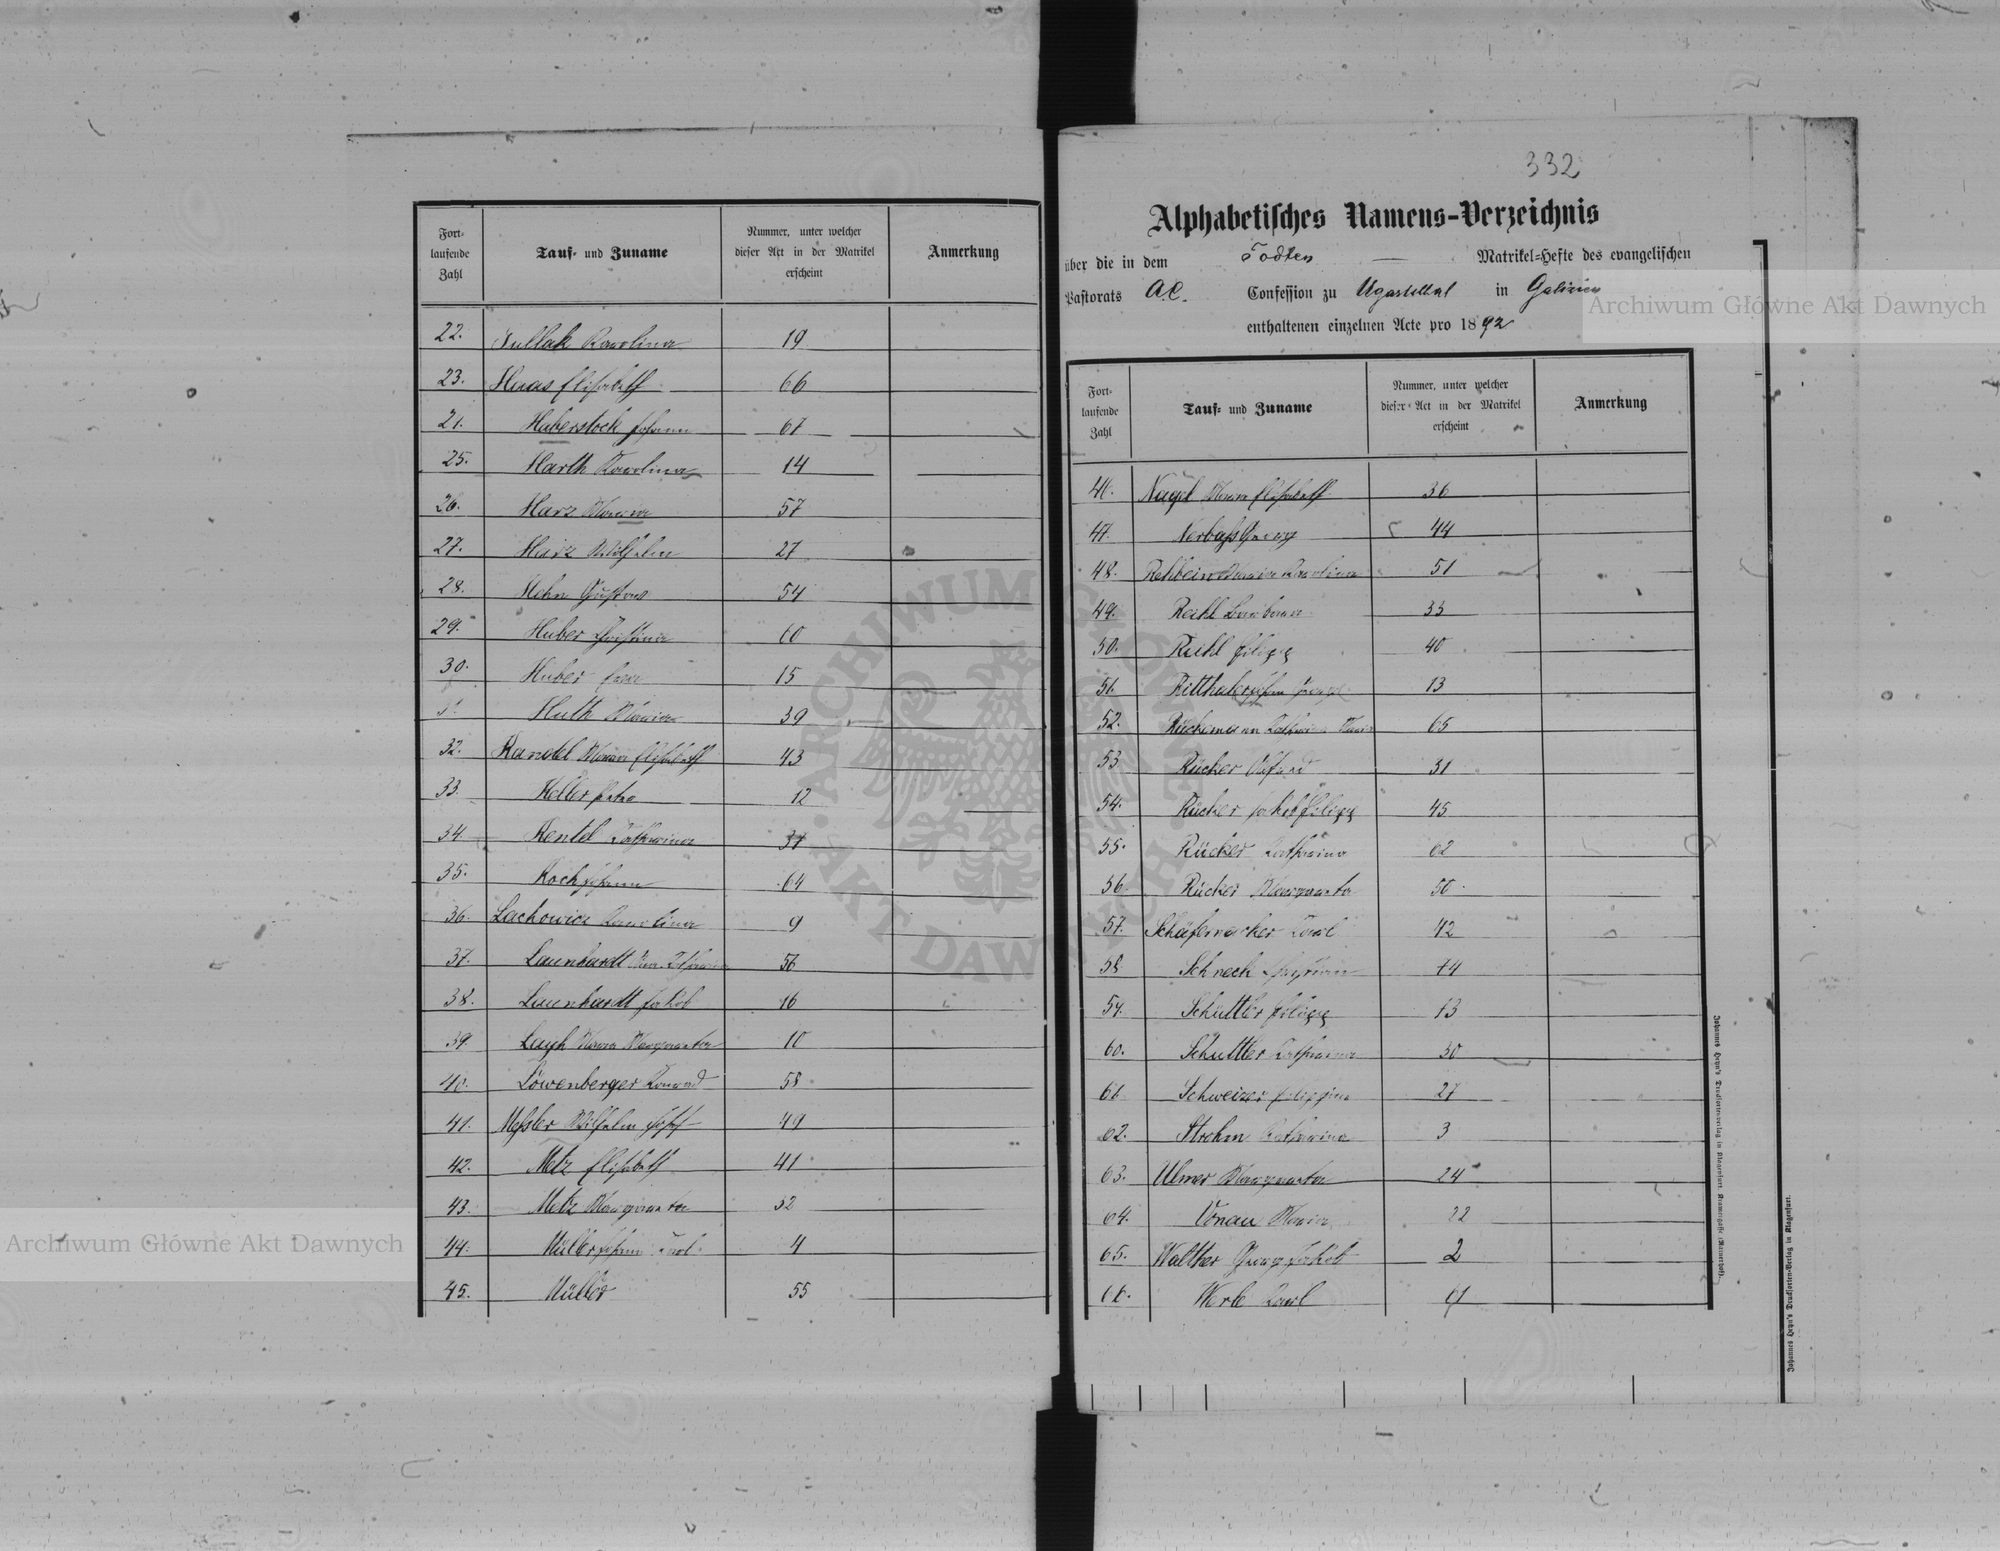 Fort-
laufende
Zahl
Tauf- und Zuname
Nummer, unter welcher
dieser Act in der Matrikel
erscheint
Anmerkung
22. Karolina 19
23. Haas Elisabeth 66
24. Haberstock Johann 67
25. Harth Karolina 14
26. Harz 57
27. Harz Wilhelm 27
28. Hehn Gustav 54
29. Huber Justina 60
30. Huber 15
Huth Maria 39
32. Kandel Maria Elisabeth 43
33. Keller 12
34. Kentel Katharina 37
35. Koch Johann 64
36. Lachowicz Karolina 9
37. Launhardt 56
38. Launhardt Jakob 16
39. Layh Margareta 10
40. Löwenberger Konrad 58
41. Meßler Wilhelm 49
42. Metz Elisabeth 41
43. Metz Margareta 52
44. Müller Johann Karl 4
45. Müller 55
332
Alphabetisches Namens-Verzeichnis
über die in dem Todten Matrikel-Hefte des evangelischen
Pastorats A.C. Confession zu Ugartsthal in Galizien
enthaltenen einzelnen Acte pro 1892
Fort-
laufende
Zahl
Tauf- und Zuname
Nummer, unter welcher
dieser Act in der Matrikel
erscheint
Anmerkung
46. Nagel Maria Elisabeth 36
47. Nerbaß Georg 44
48. Rehbein Maria Karolina 51
49. Reikl Barbara 35
50. Filipp 40
51. Ritthaler 13
52. Rückemann Katharina 65
53. Rücker 31
54. Rücker Jakob Filipp 45
55. Rücker Katharina 62
56. Rücker Margareta 50
57. Schäfernacker Karl 42
58. Schneck
59. Schuttler Filipp
60. Schuttler Katharina 30
61. Schweizer Filippina 27
62. Strohm Katharina 3
63. Ulmer Margareta 24
64. Vonau Maria 22
65. Walther Georg Jakob 2
66. Werle Karl
Johannes Heyn's Drucksorten-Verlag in Klagenfurt.
Archiwum Główne Akt Dawnych
Archiwum Główne Akt Dawnych
ARCHIWUM GŁÓWNE
AKT DAWNYCH